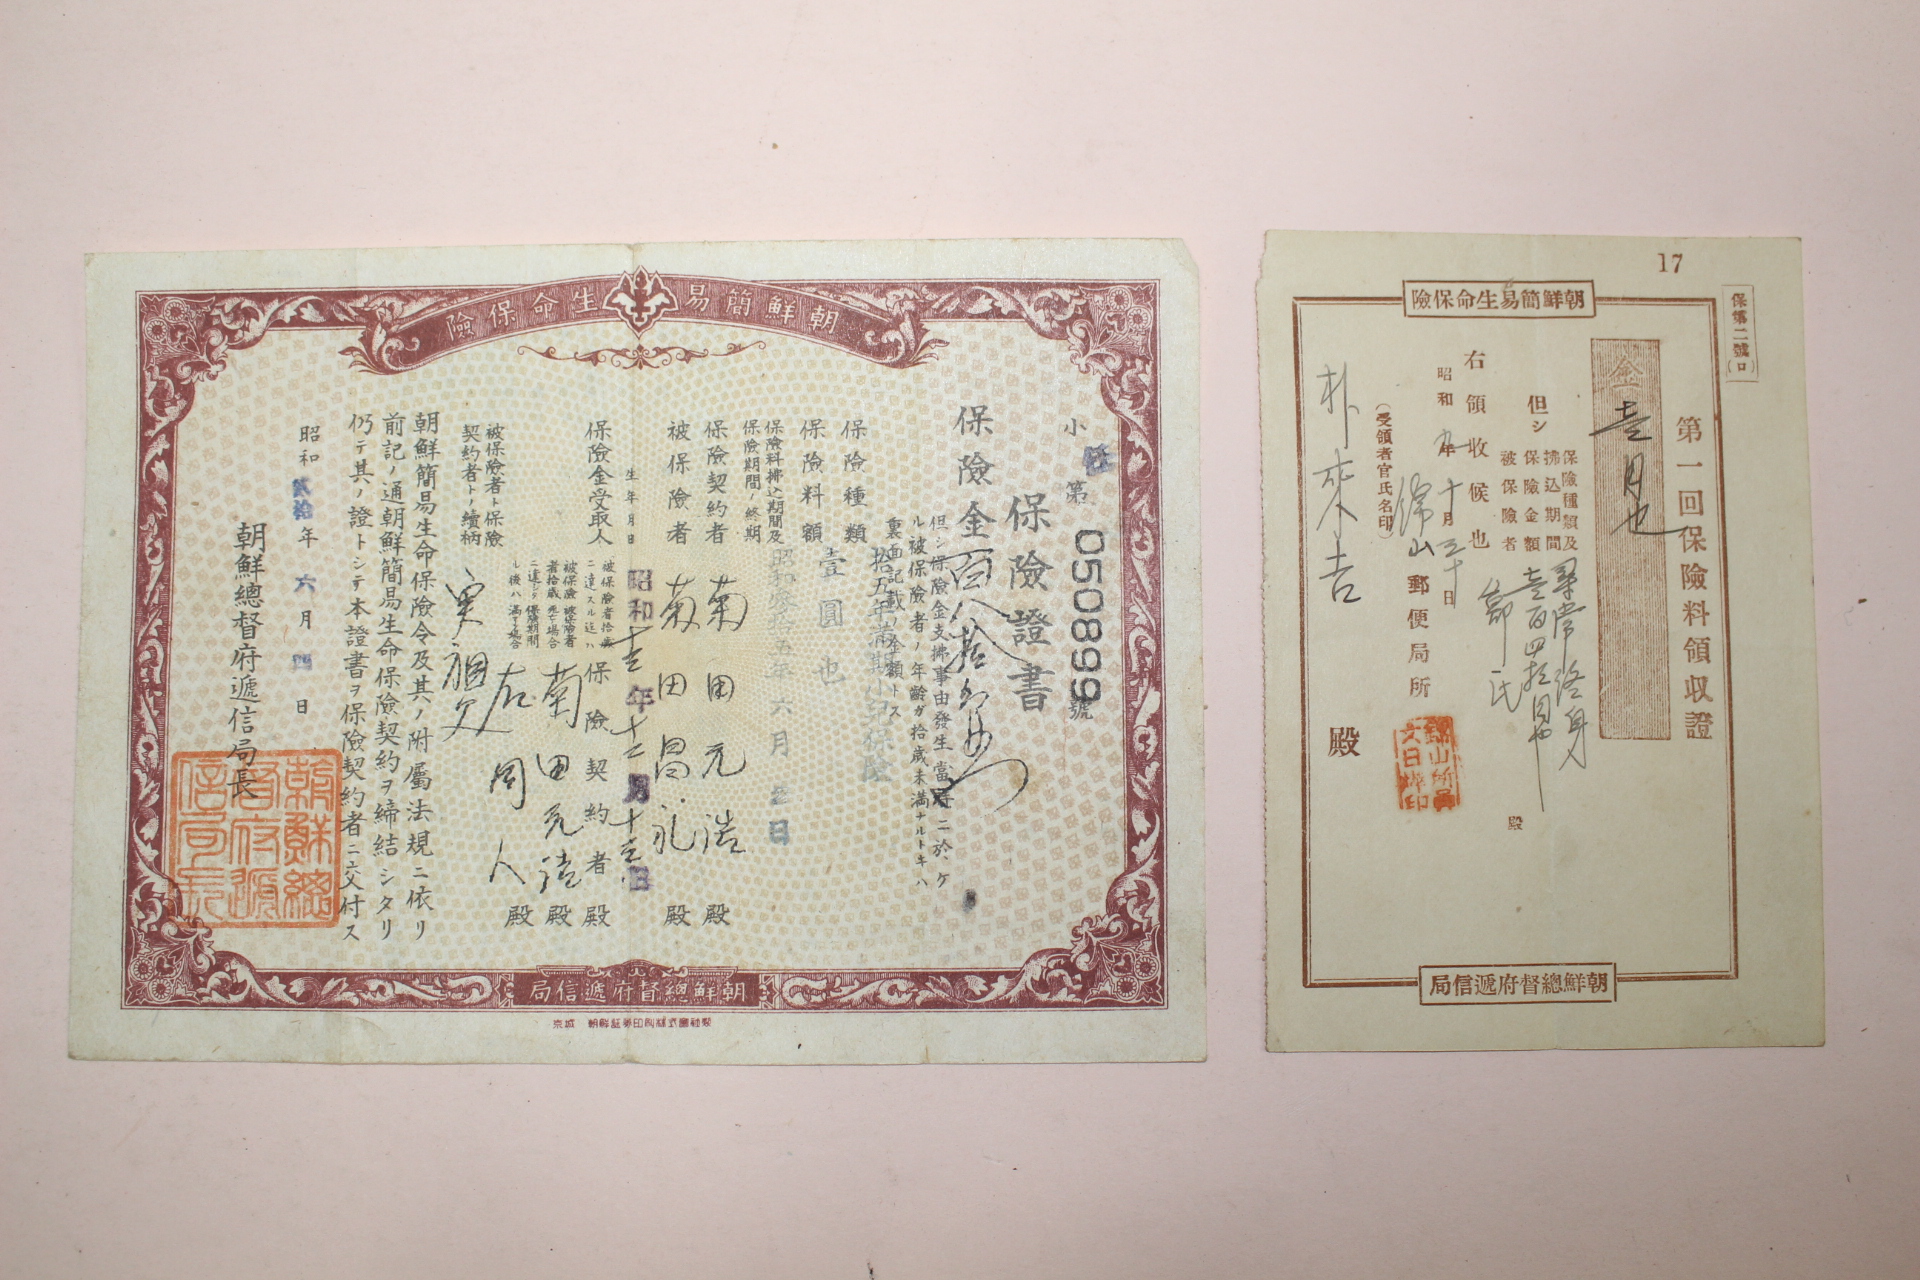 朝鮮簡易生命保險
小
第
050899
號
保險證書
保險金
但シ保險金支拂事由發生ノ當時ニ於ケ
ル被保險者ノ年齡ガ拾歲未滿ナルトキハ
裏面記載ノ金額トス
保險種類
拾五年滿期小兒保險
保險料額
壹圓也
保險料拂込期間及
保險期間ノ終期
六月
日
保險契約者
菊田元浩
殿
被保險者
菊田昌礼
殿
生年月日
昭和十三年十二月十三日
保險金受取人
保險契約者
殿
菊田元浩
殿
右同人
殿
被保險者ト保險
契約者トノ續柄
朝鮮簡易生命保險令及其ノ附屬法規ニ依リ
前記ノ通朝鮮簡易生命保險契約ヲ締結シタリ
仍テ其ノ證トシテ本證書ヲ保險契約者ニ交付ス
昭和貳拾年六月四日
朝鮮總督府遞信局長
朝鮮總督府遞信局
17
保第二號(ロ)
朝鮮簡易生命保險
第一回保險料領收證
金壹円也
但シ
保險種類及
拂込期間
尋常終身
保險金額
壹百四拾円
被保險者
鄭氏
殿
右領收候也
昭和九年十月三十日
錦山郵便局所
(受領者官氏名印)
朴來吉
殿
朝鮮總督府遞信局